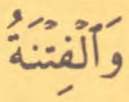 وَٱلْفِتْنَةُ